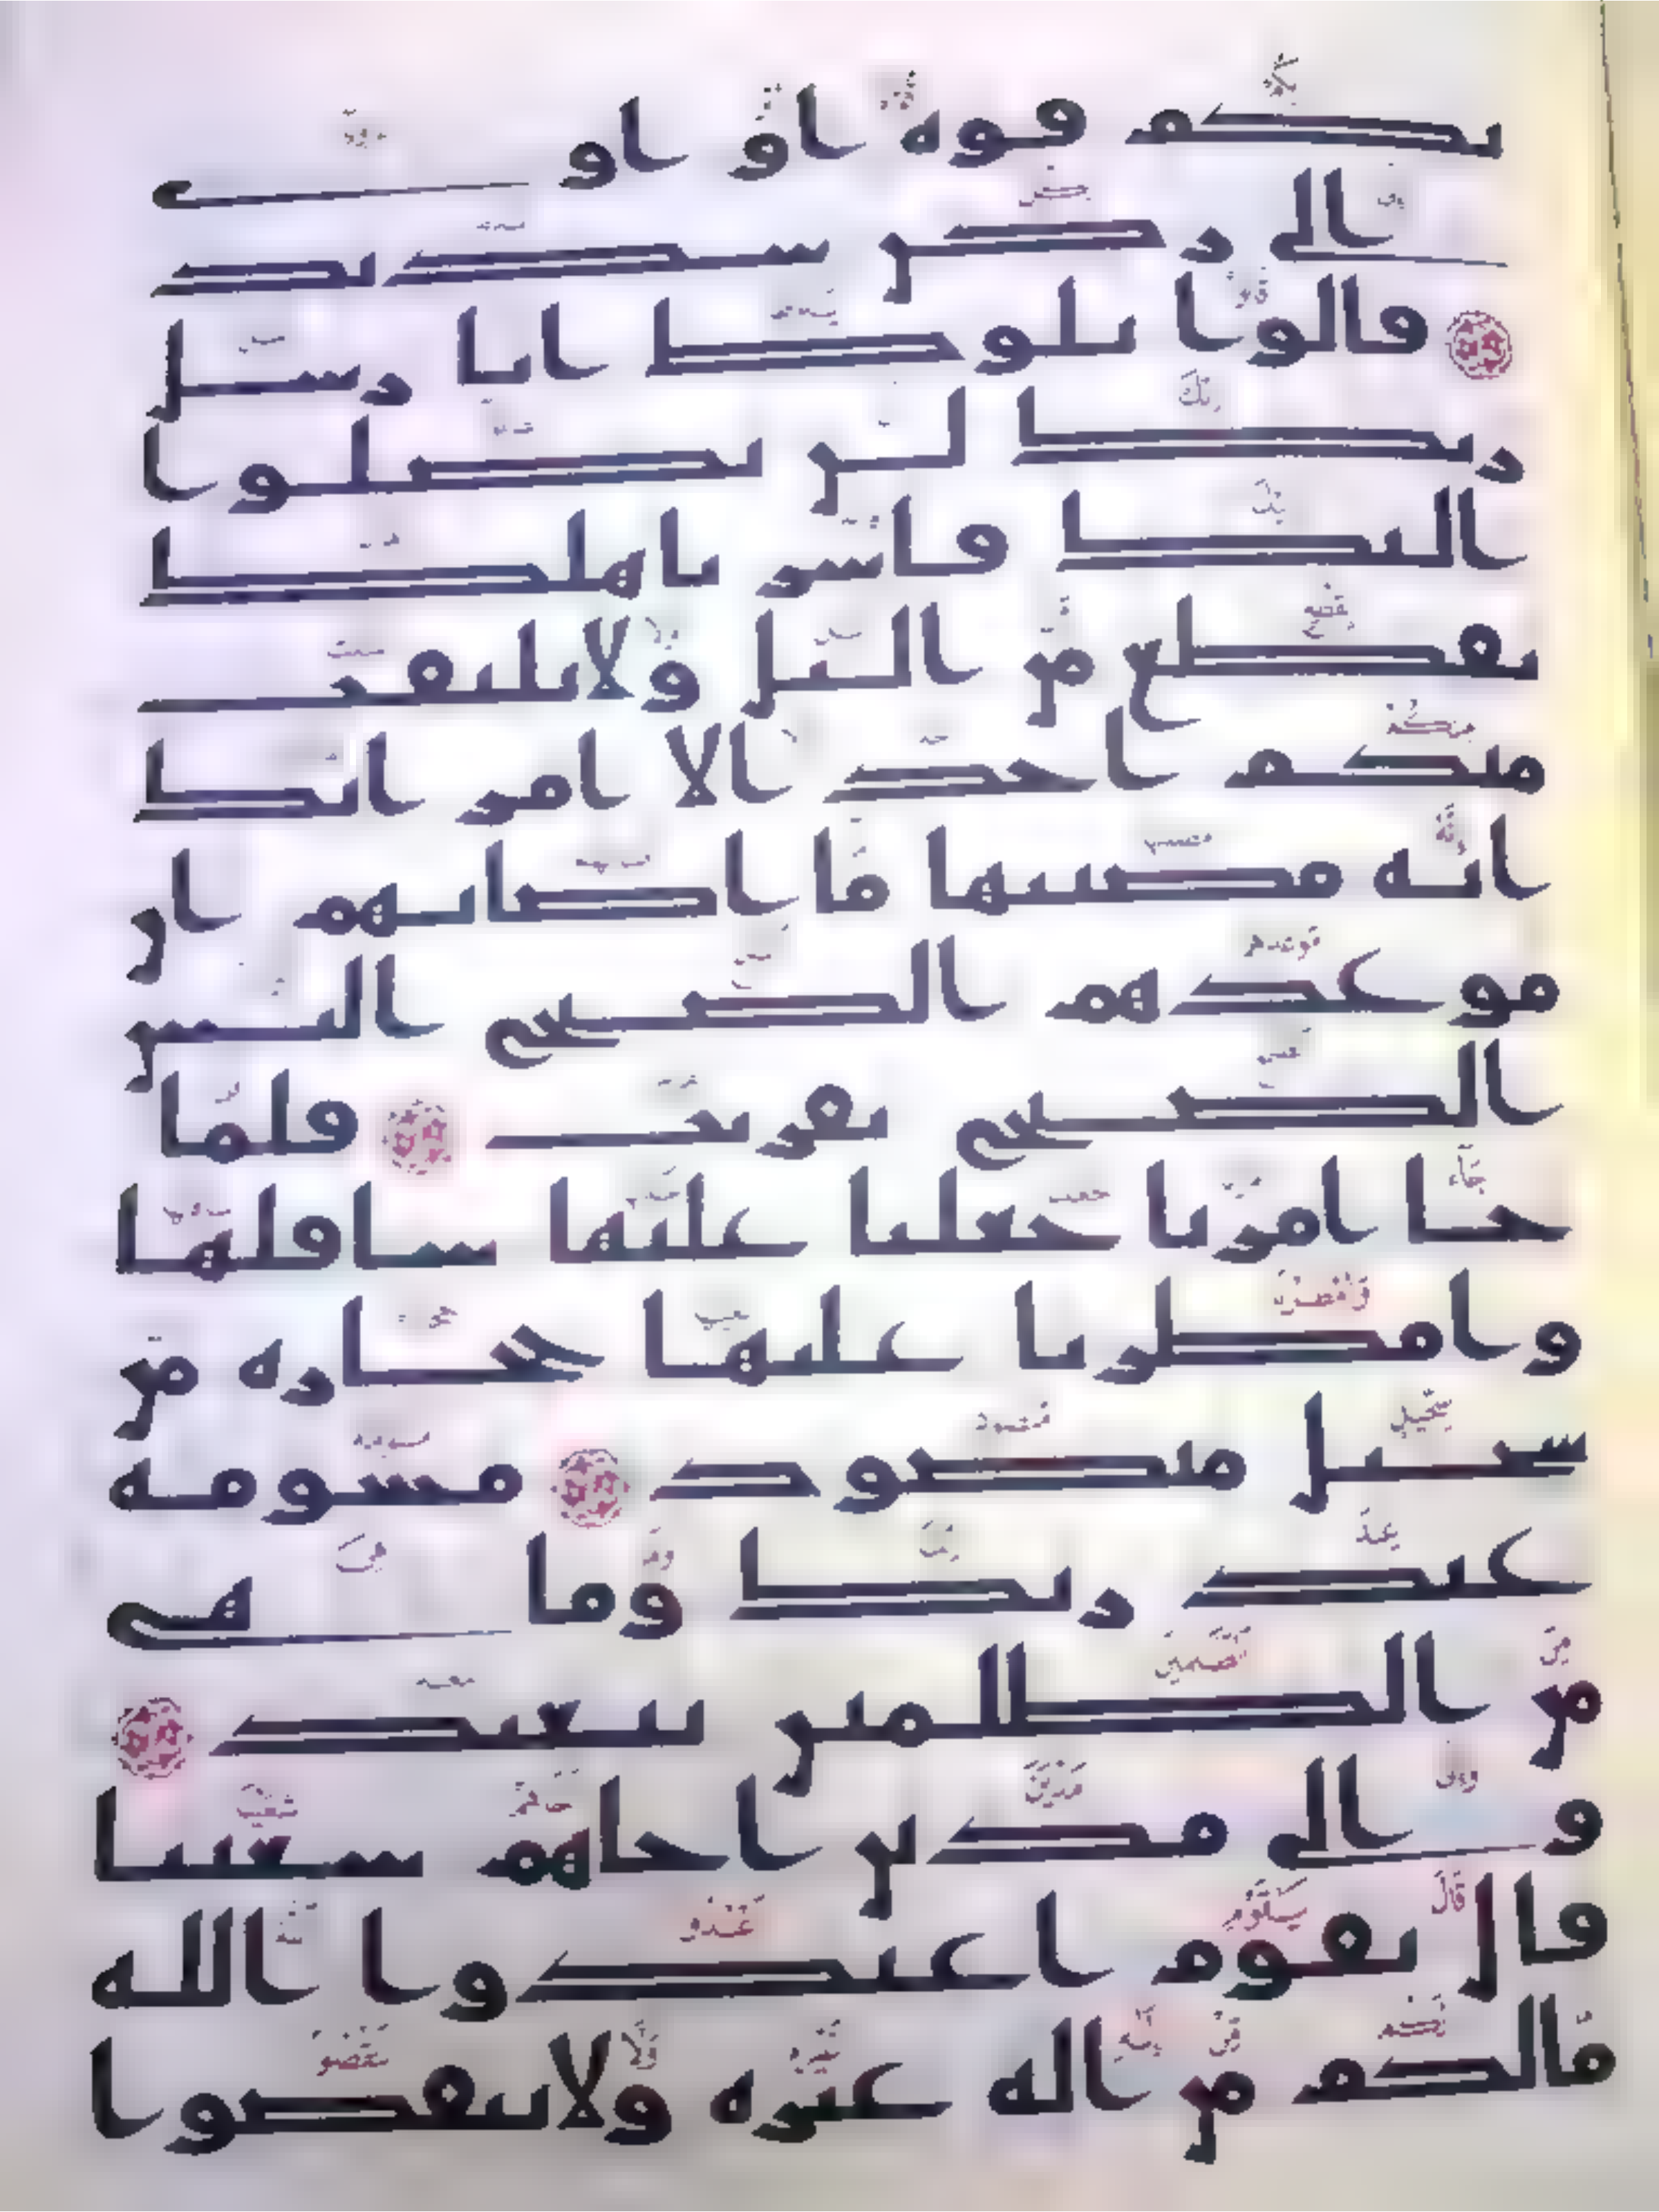 بكم قوة او اوي
الى ركن شديد
قالوا يلوط انا رسل
ربك لن يصلوا
اليك فاسر باهلك
بقطع من اليل ولا يلتفت
منكم احد الا امراتك
انه مصيبها ما اصابهم ان
موعدهم الصبح اليس
الصبح بقريب فلما
جا امرنا جعلنا عليها سافلها
وامطرنا عليها حجارة من
سجيل منضود مسومة
عند ربك وما هي
من الظلمين ببعيد
والى مدين اخاهم شعيبا
قال يقوم اعبدوا الله
ما لكم من اله غيره ولا تنقصوا